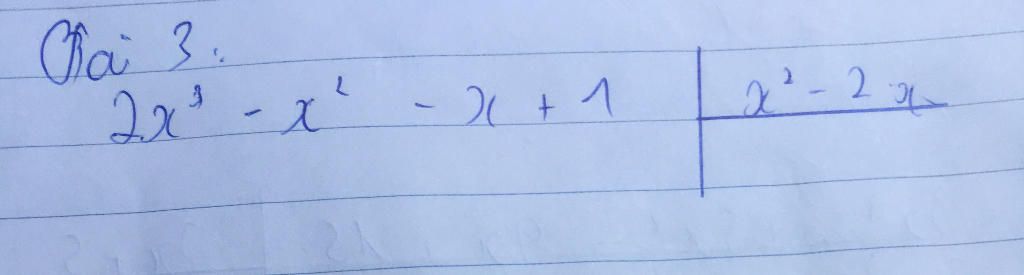 Bài 3:
2x³ - x² - x + 1 | x² - 2x